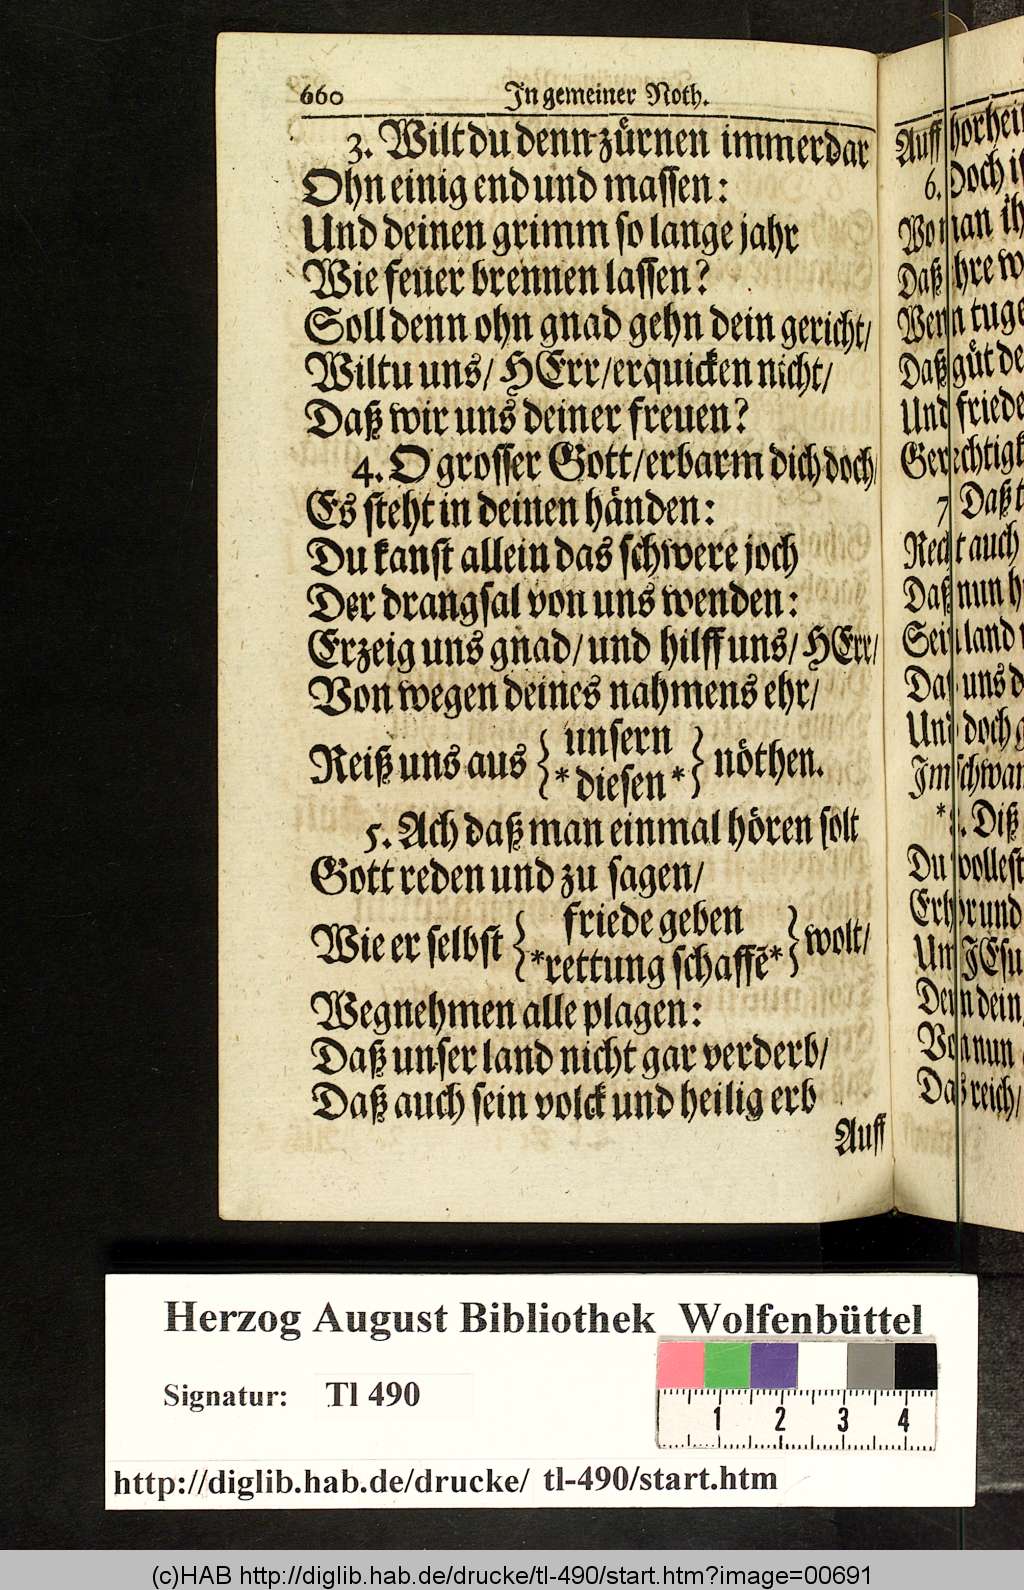 660 In gemeiner Noth.
3. Wilt du denn zürnen immerdar
Ohn einig end und massen:
Und deinen grimm so lange jahr
Wie feuer brennen lassen?
Soll denn ohn gnad gehn dein gericht/
Wiltu uns/ HErr/ erquicken nicht/
Daß wir uns deiner freuen?
4. O grosser Gott/ erbarm dich doch/
Es steht in deinen händen:
Du kanst allein das schwere joch
Der drangsal von uns wenden:
Erzeig uns gnad/ und hilff uns/ HErr/
Von wegen deines nahmens ehr/
Reiß uns aus { unsern } nöthen.
* diesen *
5. Ach daß man einmal hören solt
Gott reden und zu sagen/
Wie er selbst { friede geben } wolt/
* rettung schaffē *
Wegnehmen alle plagen:
Daß unser land nicht gar verderb/
Daß auch sein volck und heilig erb
Auff
Auff
6. Doch
Daß
Daß güt
Und friede
7. Daß
auch
Daß nun
land
uns
Und doch
Im
Diß
Du wollest
und
Um JEsu
Denn dein
nun
Daß reich/
Herzog August Bibliothek Wolfenbüttel
Signatur: Tl 490
1 2 3 4
http://diglib.hab.de/drucke/ tl-490/start.htm
(c)HAB http://diglib.hab.de/drucke/tl-490/start.htm?image=00691